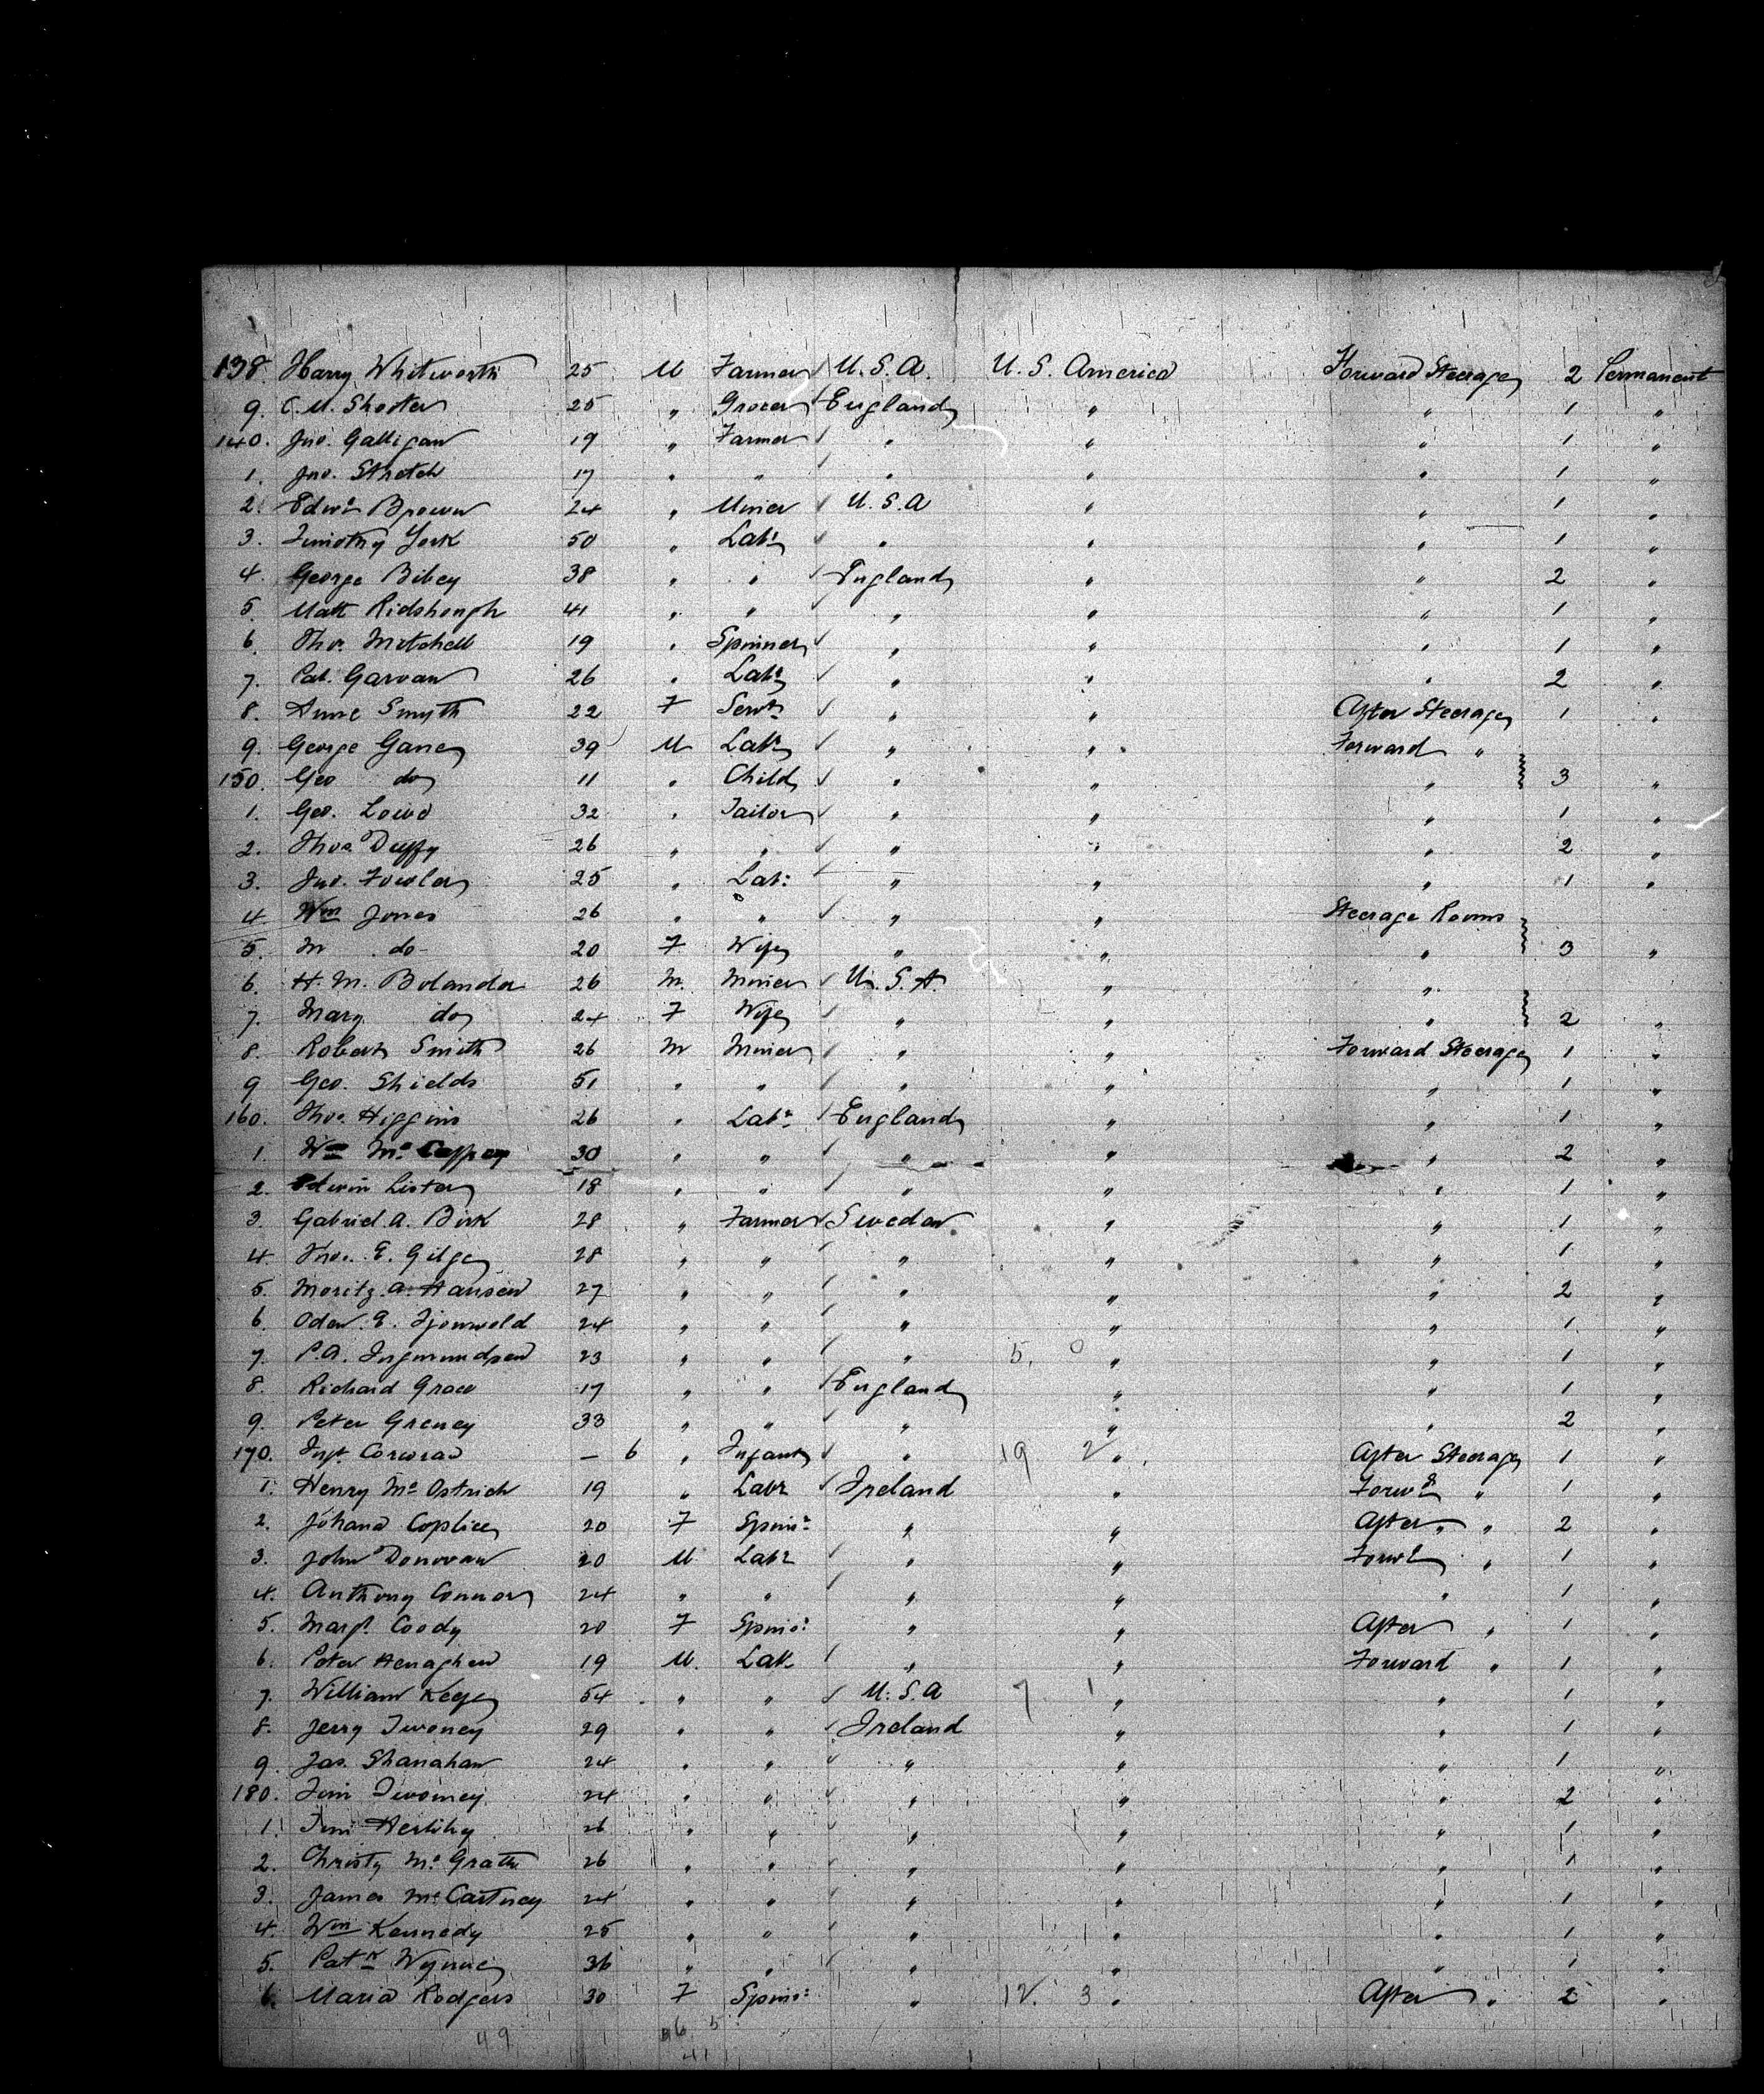 138. Harry Whitworth 25 M Farmer U.S.A. U.S. America Forward Steerage 2 Permanent
9. C.M. Shooter 25 " Grocer England " " 1 "
140. Jno. Galligan 19 " Farmer " " " 1 "
1. Jno. Stretch 17 " " " " " 1 "
2. Edwd Brower 24 " Miner U.S.A " " 1 "
3. Timothy York 50 " Labr " " " 1 "
4. George Bibey 38 " " England " " 2 "
5. Matt 41 " " " " " 1 "
6. Thos. Mitchell 19 " Spinner " " " 1 "
7. Pat. Garvan 26 " Labr " " " 2 "
8. Anne Smyth 22 F Servt " " After Steerage 1 "
9. George Ganey 39 M Labr " " Forward "
150. Geo do 11 " Child " " " 3 "
1. Geo. Lowe 32 " Tailor " " " 1 "
2. Thos Duffy 26 " " " " " 2 "
3. Jno. Fowler 25 " Lab: " " " 1 "
4 Wm Jones 26 " " " " Steerage Rooms
5. M do 20 F Wife " " " 3 "
6. H.M. Bolander 26 M. Miner U.S.A. " "
7. Mary do 24 F Wife " " " 2 "
8. Robert Smith 26 M Miner " " Forward Steerage 1 "
9 Geo. Shields 51 " " " " " 1 "
160. Thos. Higgins 26 " Labr England " " 1 "
1. Wm Mc 30 " " " " " 2 "
2. Edwin Lister 18 " " " " " 1 "
3. Gabriel A. Birk 28 " Farmer Sweden " " 1 "
4. E. Gilge 28 " " " " " 1 "
5. Moritz A. Hansen 27 " " " " " 2 "
6. E. 24 " " " " " 1 "
7. P.A. Ingmundsen 23 " " " 5. 0 " " 1 "
8. Richard Grace 17 " " England " " 1 "
9. Peter Greney 33 " " " " " 2 "
170. Inft. Corcoran — 6 " Infant " 19 2 " After Steerage 1 "
1. Henry Mc Ostrich 19 " Labr Ireland " Forwd " 1 "
2. Johana Coplice 20 F Spinr " " After " " 2 "
3. John Donovan 20 M Labr " " Forwd " 1 "
4. Anthony Connor 24 " " " " " 1 "
5. Margt. Coody 20 F Spinr " " After " 1 "
6. Peter Henaghen 19 M. Labr " " Forward " 1 "
7. William Keefe 54 " " U.S.A 7 1 " " 1 "
8. Jerry Twomey 29 " " Ireland " " 1 "
9. Jas. Shanahan 24 " " " " " 1 "
180. Tim Twomey 24 " " " " " 2 "
1. Tim Herlihy 26 " " " " " 1 "
2. Christy Mc Grath 26 " " " " " 1 "
3. James McCartney 24 " " " " " 1 "
4. Wm Kennedy 25 " " " " " 1 "
5. Patk Wynne 36 " " " " " 1 "
6. Maria Rodgers 30 F Spinr " 12. 3 " After " 2 "
49 46 5
41